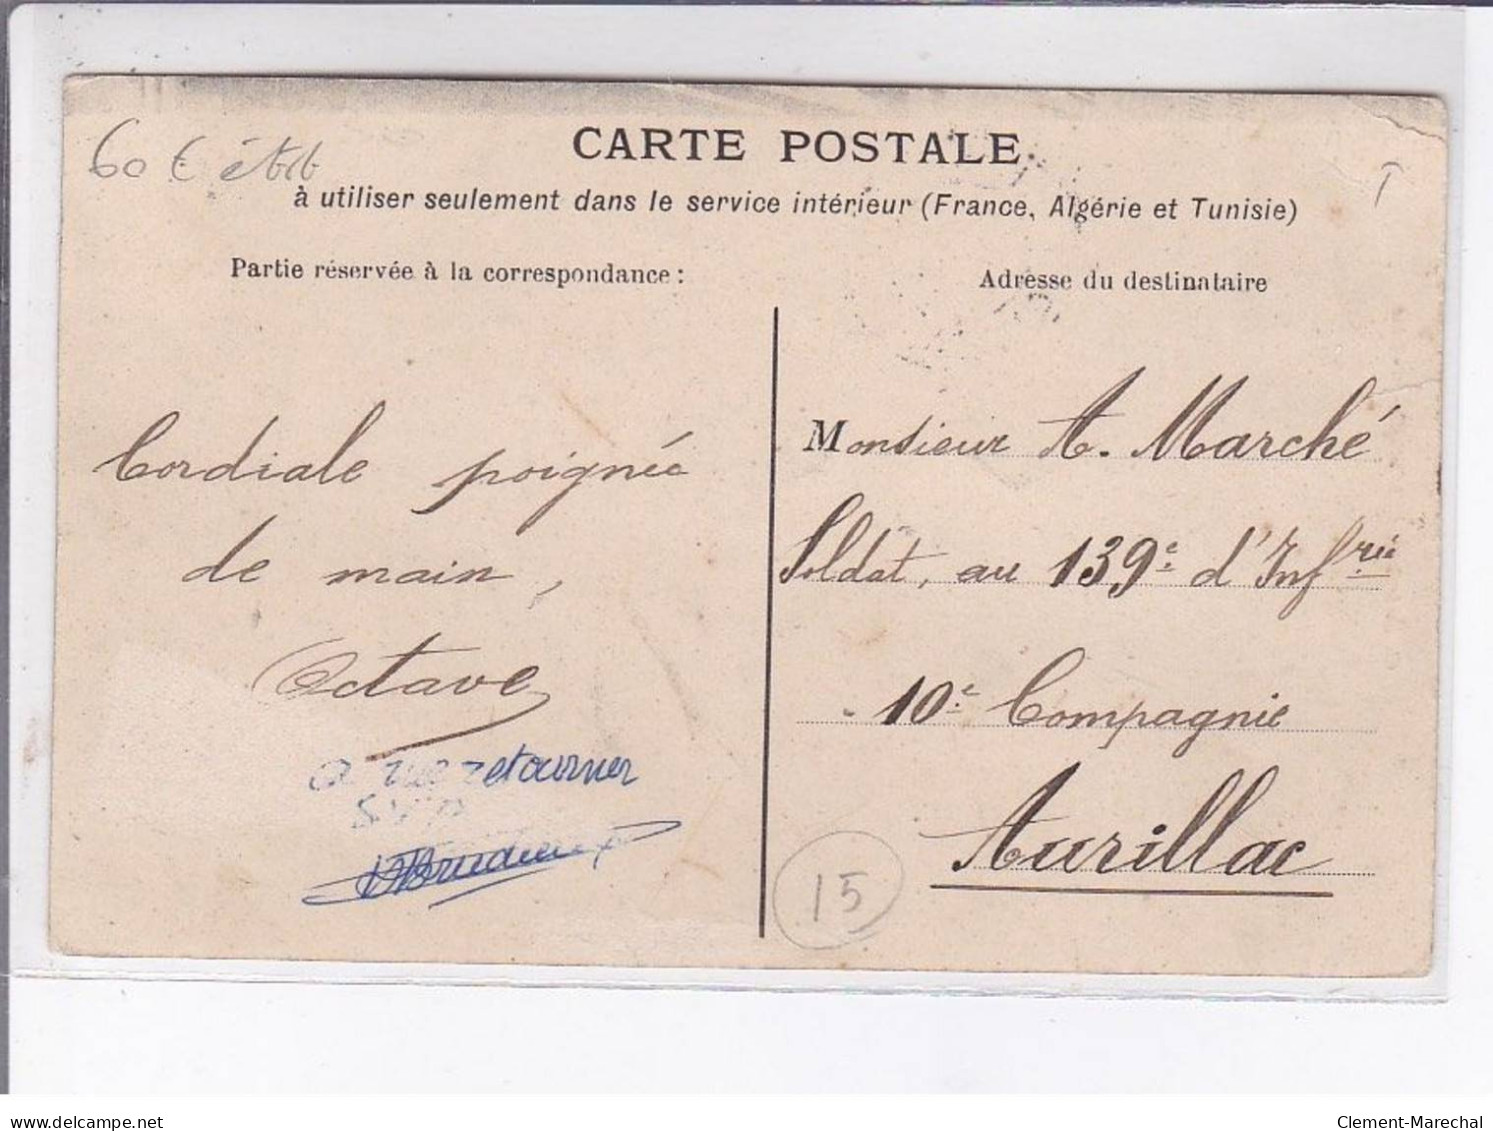 60 €
CARTE POSTALE
à utiliser seulement dans le service intérieur (France, Algérie et Tunisie)
Partie réservée à la correspondance :
Adresse du destinataire
Cordiale poignée
de main,
Octave
a me retourner
SVP
Monsieur A. Marché
Soldat, au 139e d'Infrie
10e Compagnie
Aurillac
15
T
www.delcampe.net
Clement-Marechal